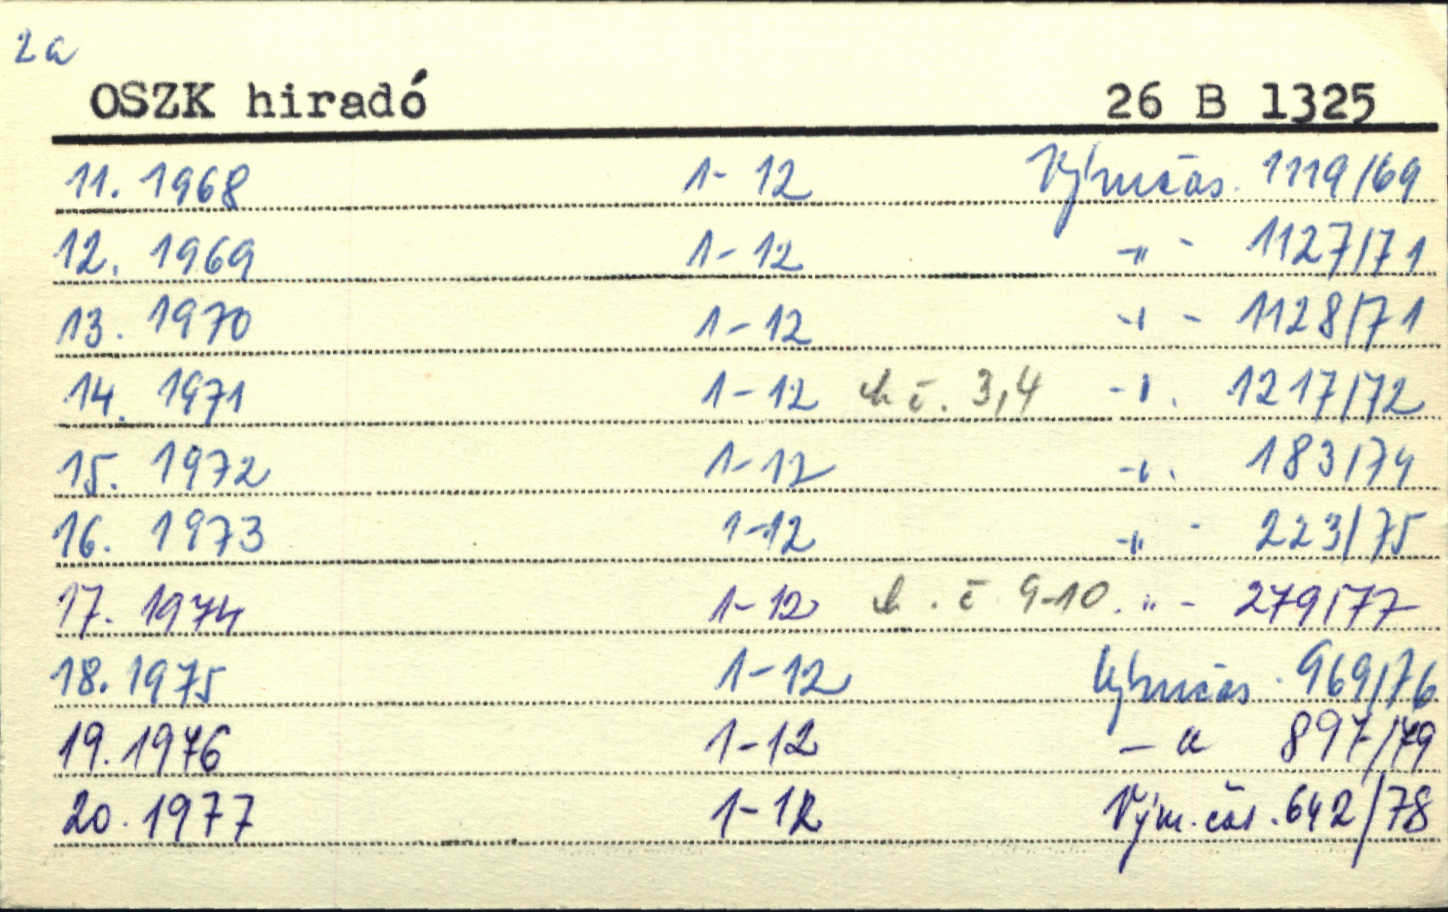 2a
OSZK hiradó 26 B 1325
11. 1968 1-12 Vým.čas. 1119/69
12. 1969 1-12 -"- 1127/71
13. 1970 1-12 -"- 1128/71
14. 1971 1-12 ch č. 3,4 -"- 1217/72
15. 1972 1-12 -"- 183/74
16. 1973 1-12 -"- 223/75
17. 1974 1-12 ch. č 9-10. -"- 279/77
18. 1975 1-12 Vým.čas. 969/76
19. 1976 1-12 -"- 897/79
20. 1977 1-12 Vým. čas. 642/78